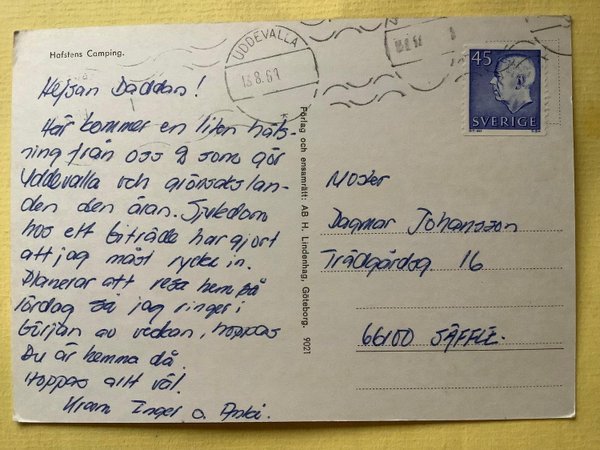 Hafstens Camping.
UDDEVALLA
13.8.69
45
SVERIGE
Hejsan Daddan!
Här kommer en liten häls-
ning från oss 2 som gör
Uddevalla och grönsakslan-
den den äran. Sjukdom
hos ett biträde har gjort
att jag måst rycka in.
Planerar att resa hem på
lördag så jag ringer i
början av veckan, hoppas
Du är hemma då.
Hoppas allt väl!
Kram Inger o. Anki.
Förlag och ensamrätt: AB H. Lindenhag, Göteborg. 9021
Moster
Dagmar Johansson
Trädgårdsg 16
66100 SÄFFLE.